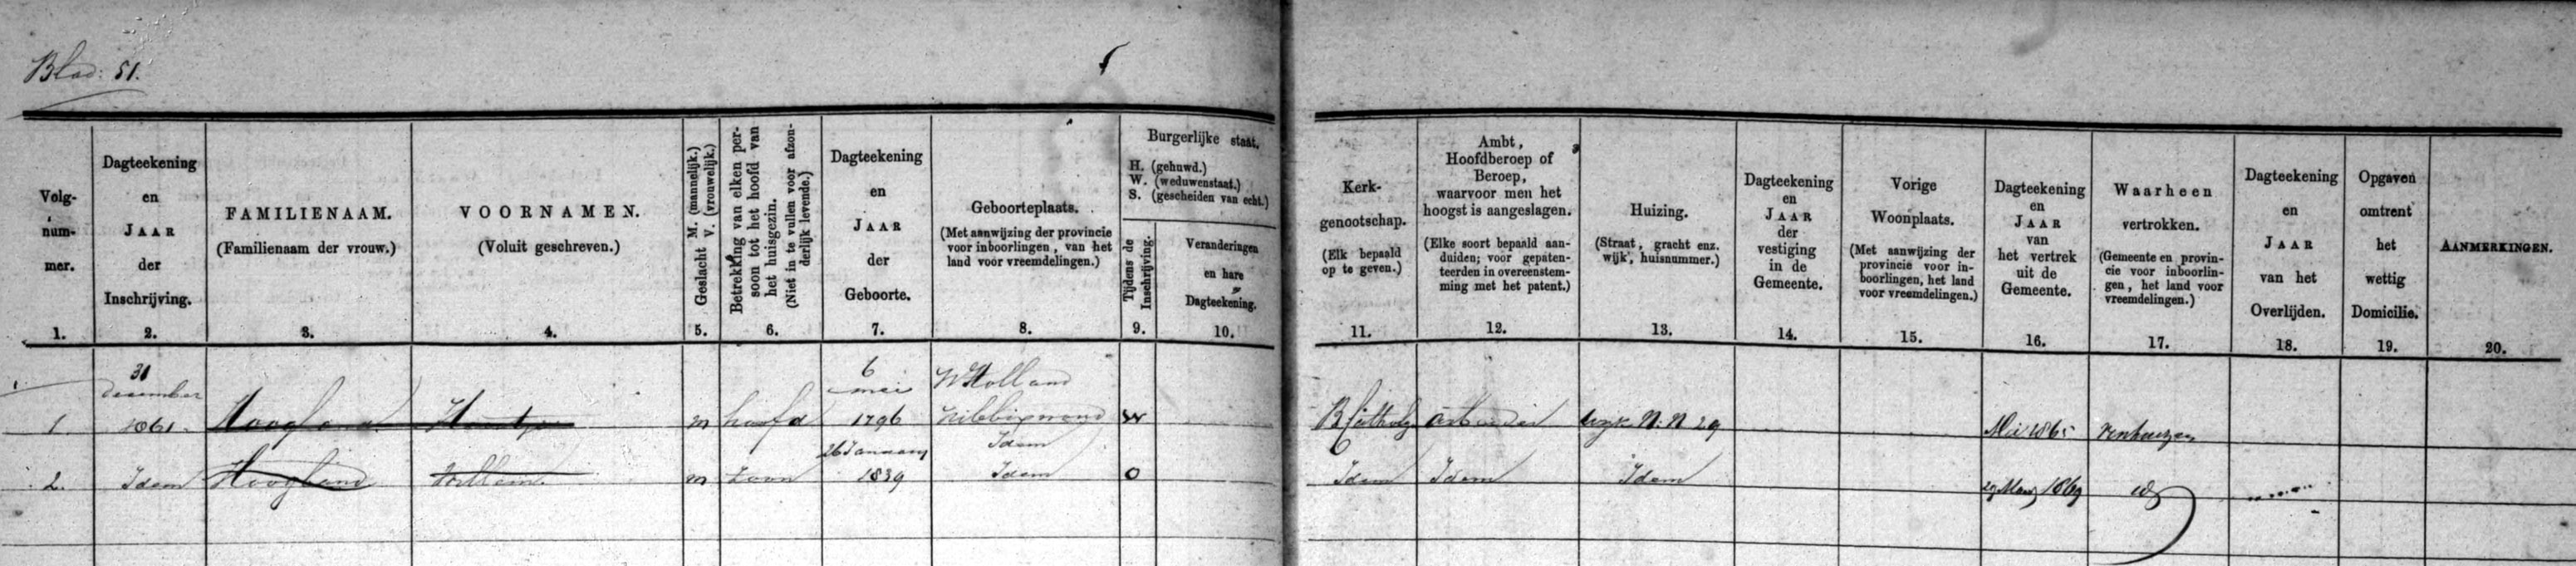 Blad: 51.
Volg-
num-
mer.
1.
Dagteekening
en
JAAR
der
Inschrijving.
2.
FAMILIENAAM.
(Familienaam der vrouw.)
3.
VOORNAMEN.
(Voluit geschreven.)
4.
Geslacht M. (mannelijk.)
V. (vrouwelijk.)
5.
Betrekking van elken per-
soon tot het hoofd van
het huisgezin.
(Niet in te vullen voor afzon-
derlijk levende.)
6.
Dagteekening
en
JAAR
der
Geboorte.
7.
Geboorteplaats.
(Met aanwijzing der provincie
voor inboorlingen, van het
land voor vreemdelingen.)
8.
Burgerlijke staat.
H. (gehuwd.)
W. (weduwenstaat.)
S. (gescheiden van echt.)
Tijdens de
Inschrijving.
9.
Veranderingen
en hare
Dagteekening.
10.
Kerk-
genootschap.
(Elk bepaald
op te geven.)
11.
Ambt,
Hoofdberoep of
Beroep,
waarvoor men het
hoogst is aangeslagen.
(Elke soort bepaald aan-
duiden; voor gepaten-
teerden in overeenstem-
ming met het patent.)
12.
Huizing.
(Straat, gracht enz.
wijk, huisnummer.)
13.
Dagteekening
en
JAAR
der
vestiging
in de
Gemeente.
14.
Vorige
Woonplaats.
(Met aanwijzing der
provincie voor in-
boorlingen, het land
voor vreemdelingen.)
15.
Dagteekening
en
JAAR
van
het vertrek
uit de
Gemeente.
16.
Waarheen
vertrokken.
(Gemeente en provin-
cie voor inboorlin-
gen, het land voor
vreemdelingen.)
17.
Dagteekening
en
JAAR
van het
Overlijden.
18.
Opgaven
omtrent
het
wettig
Domicilie.
19.
AANMERKINGEN.
20.
31
december
1861
6
mei
NHolland
1. Hoogland m hoofd 1796 Nibbixwoud W
arbeider wijk N: N 29 Mei 1865 Venhuizen
26 Januarij Idem
2. Idem Hoogland Willem m zoon 1839 Idem O
Idem Idem Idem 29 Maart 1869